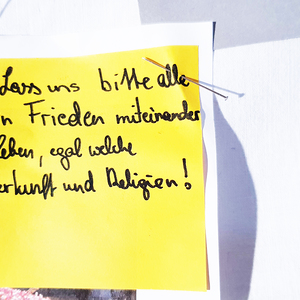 Lass uns bitte alle
n Frieden miteinander
leben, egal welche
erkunft und Religion!